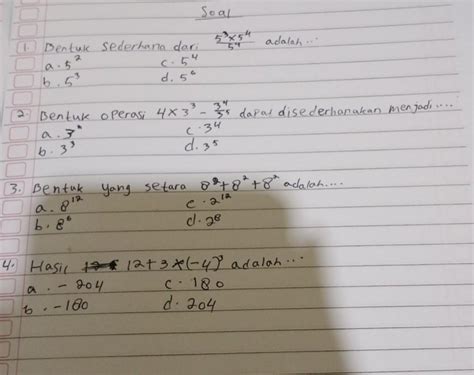 Soal
1. Bentuk sederhana dari 5³×5⁴/5⁴ adalah...
a. 5² c. 5⁴
b. 5³ d. 5⁶
2. Bentuk operasi 4×3³ - 3⁴/3⁵ dapat disederhanakan menjadi....
a. 3⁶ c. 3⁴
b. 3³ d. 3⁵
3. Bentuk yang setara 8²+8²+8² adalah....
a. 8¹² c. 2¹²
b. 8⁶ d. 2⁸
4. Hasil 12+3×(-4)³ adalah...
a. -204 c. 180
b. -180 d. 204